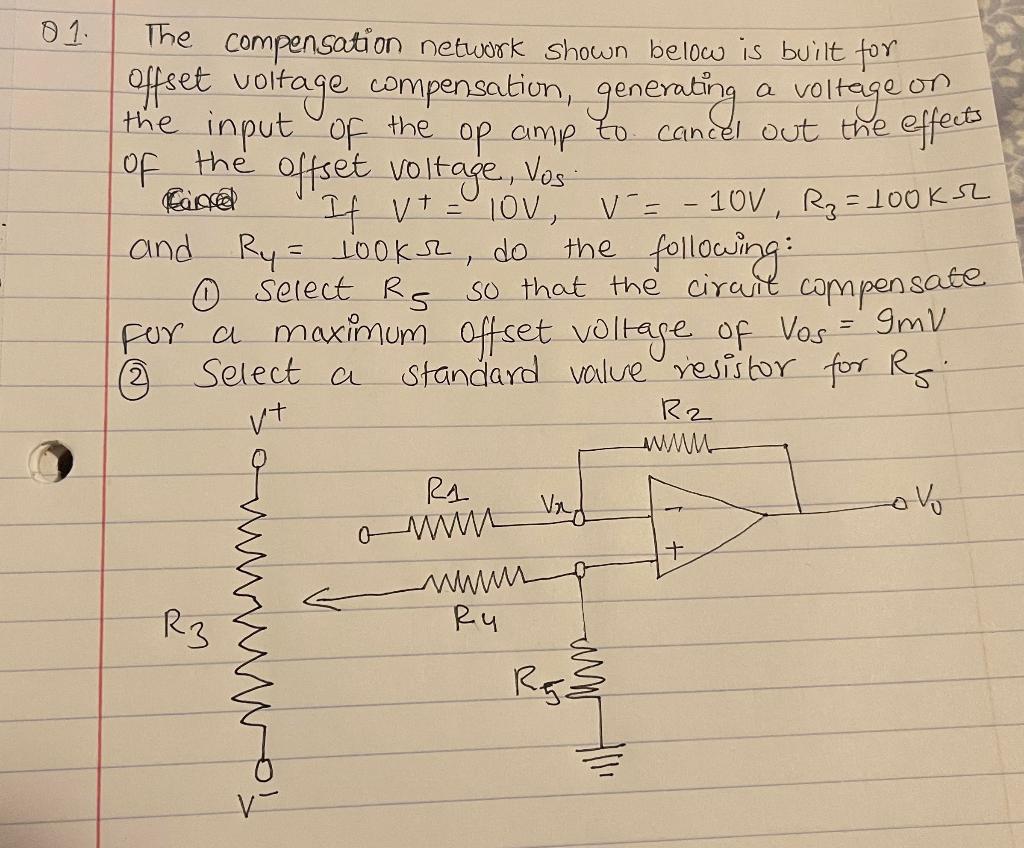 Q1. The compensation network shown below is built for
offset voltage compensation, generating a voltage on
the input of the op amp to cancel out the effects
of the offset voltage, Vos.
If V+ = 10V, V- = - 10V, R3 = 100KΩ
and R4 = 100KΩ, do the following:
① Select R5 so that the circuit compensate
for a maximum offset voltage of Vos = 9mV
② Select a standard value resistor for R5.
V+
R2
R1
Vx
-
Vo
+
R3
R4
R5
V-